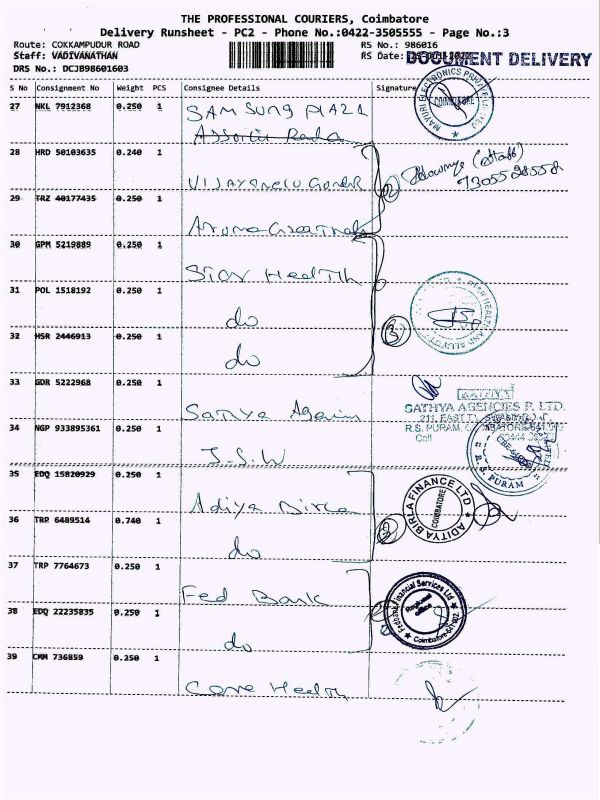 THE PROFESSIONAL COURIERS, Coimbatore
Delivery Runsheet - PC2 - Phone No.:0422-3505555 - Page No.:3
Route: COKKAMPUDUR ROAD
RS No.: 986016
Staff: VADIVANATHAN
RS Date:
DOCUMENT DELIVERY
DRS No.: DCJB98601603
S No Consignment No Weight PCS Consignee Details Signature
27 NKL 7912368 0.250 1 SAMSUNG PLAZA
28 HRD 50103635 0.240 1
(staff)
29 TRZ 40177435 0.250 1
30 GPM 5219889 0.250 1 Star Health
31 POL 1518192 0.250 1 do
32 HSR 2446913 0.250 1 do
3
33 GDR 5222968 0.250 1 Sathya
SATHYA AGENCIES P. LTD.
34 NGP 933895361 0.250 1 J.S.W
R.S. PURAM
35 EDQ 15820929 0.250 1 Aditya Birla
ADITYA BIRLA FINANCE LTD
COIMBATORE
36 TRP 6489514 0.740 1 do
37 TRP 7764673 0.250 1 Fed Bank
Financial Services Ltd
38 EDQ 22235835 0.250 1 do
39 CMM 736859 0.250 1 Care Health